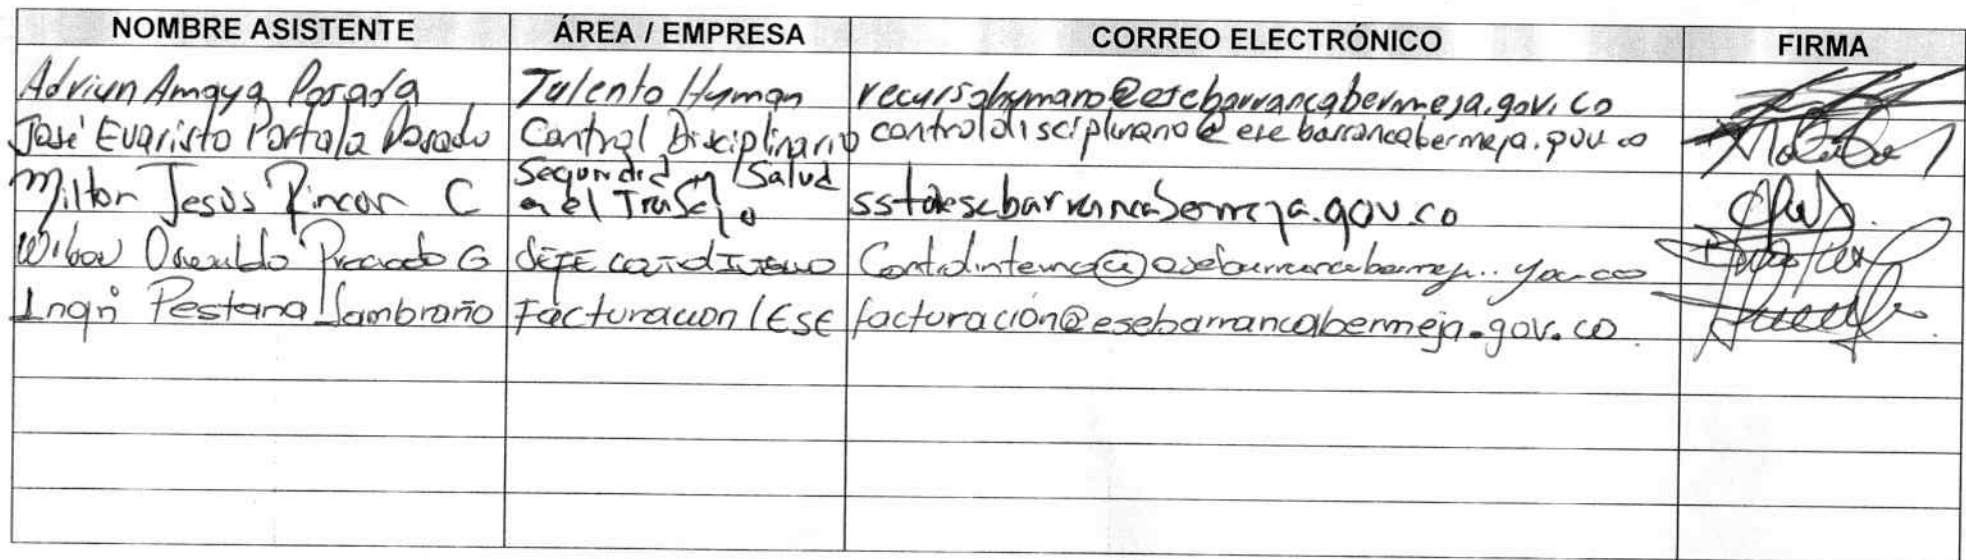 NOMBRE ASISTENTE ÁREA / EMPRESA CORREO ELECTRÓNICO FIRMA
Adrian Amaya Posada Talento Human recursohumano@esebarrancabermeja.gov.co
José Evaristo Portala Posado Control Disciplinario controldisciplinario@esebarrancabermeja.gov.co
Milton Jesus Rincon C Seguridad y Salud en el Trabajo sst@esebarrancabermeja.gov.co
Oswaldo G Controlinterno@esebarrancabermeja.gov.co
Pestana Zambraño Facturacion / ESE facturación@esebarrancabermeja.gov.co